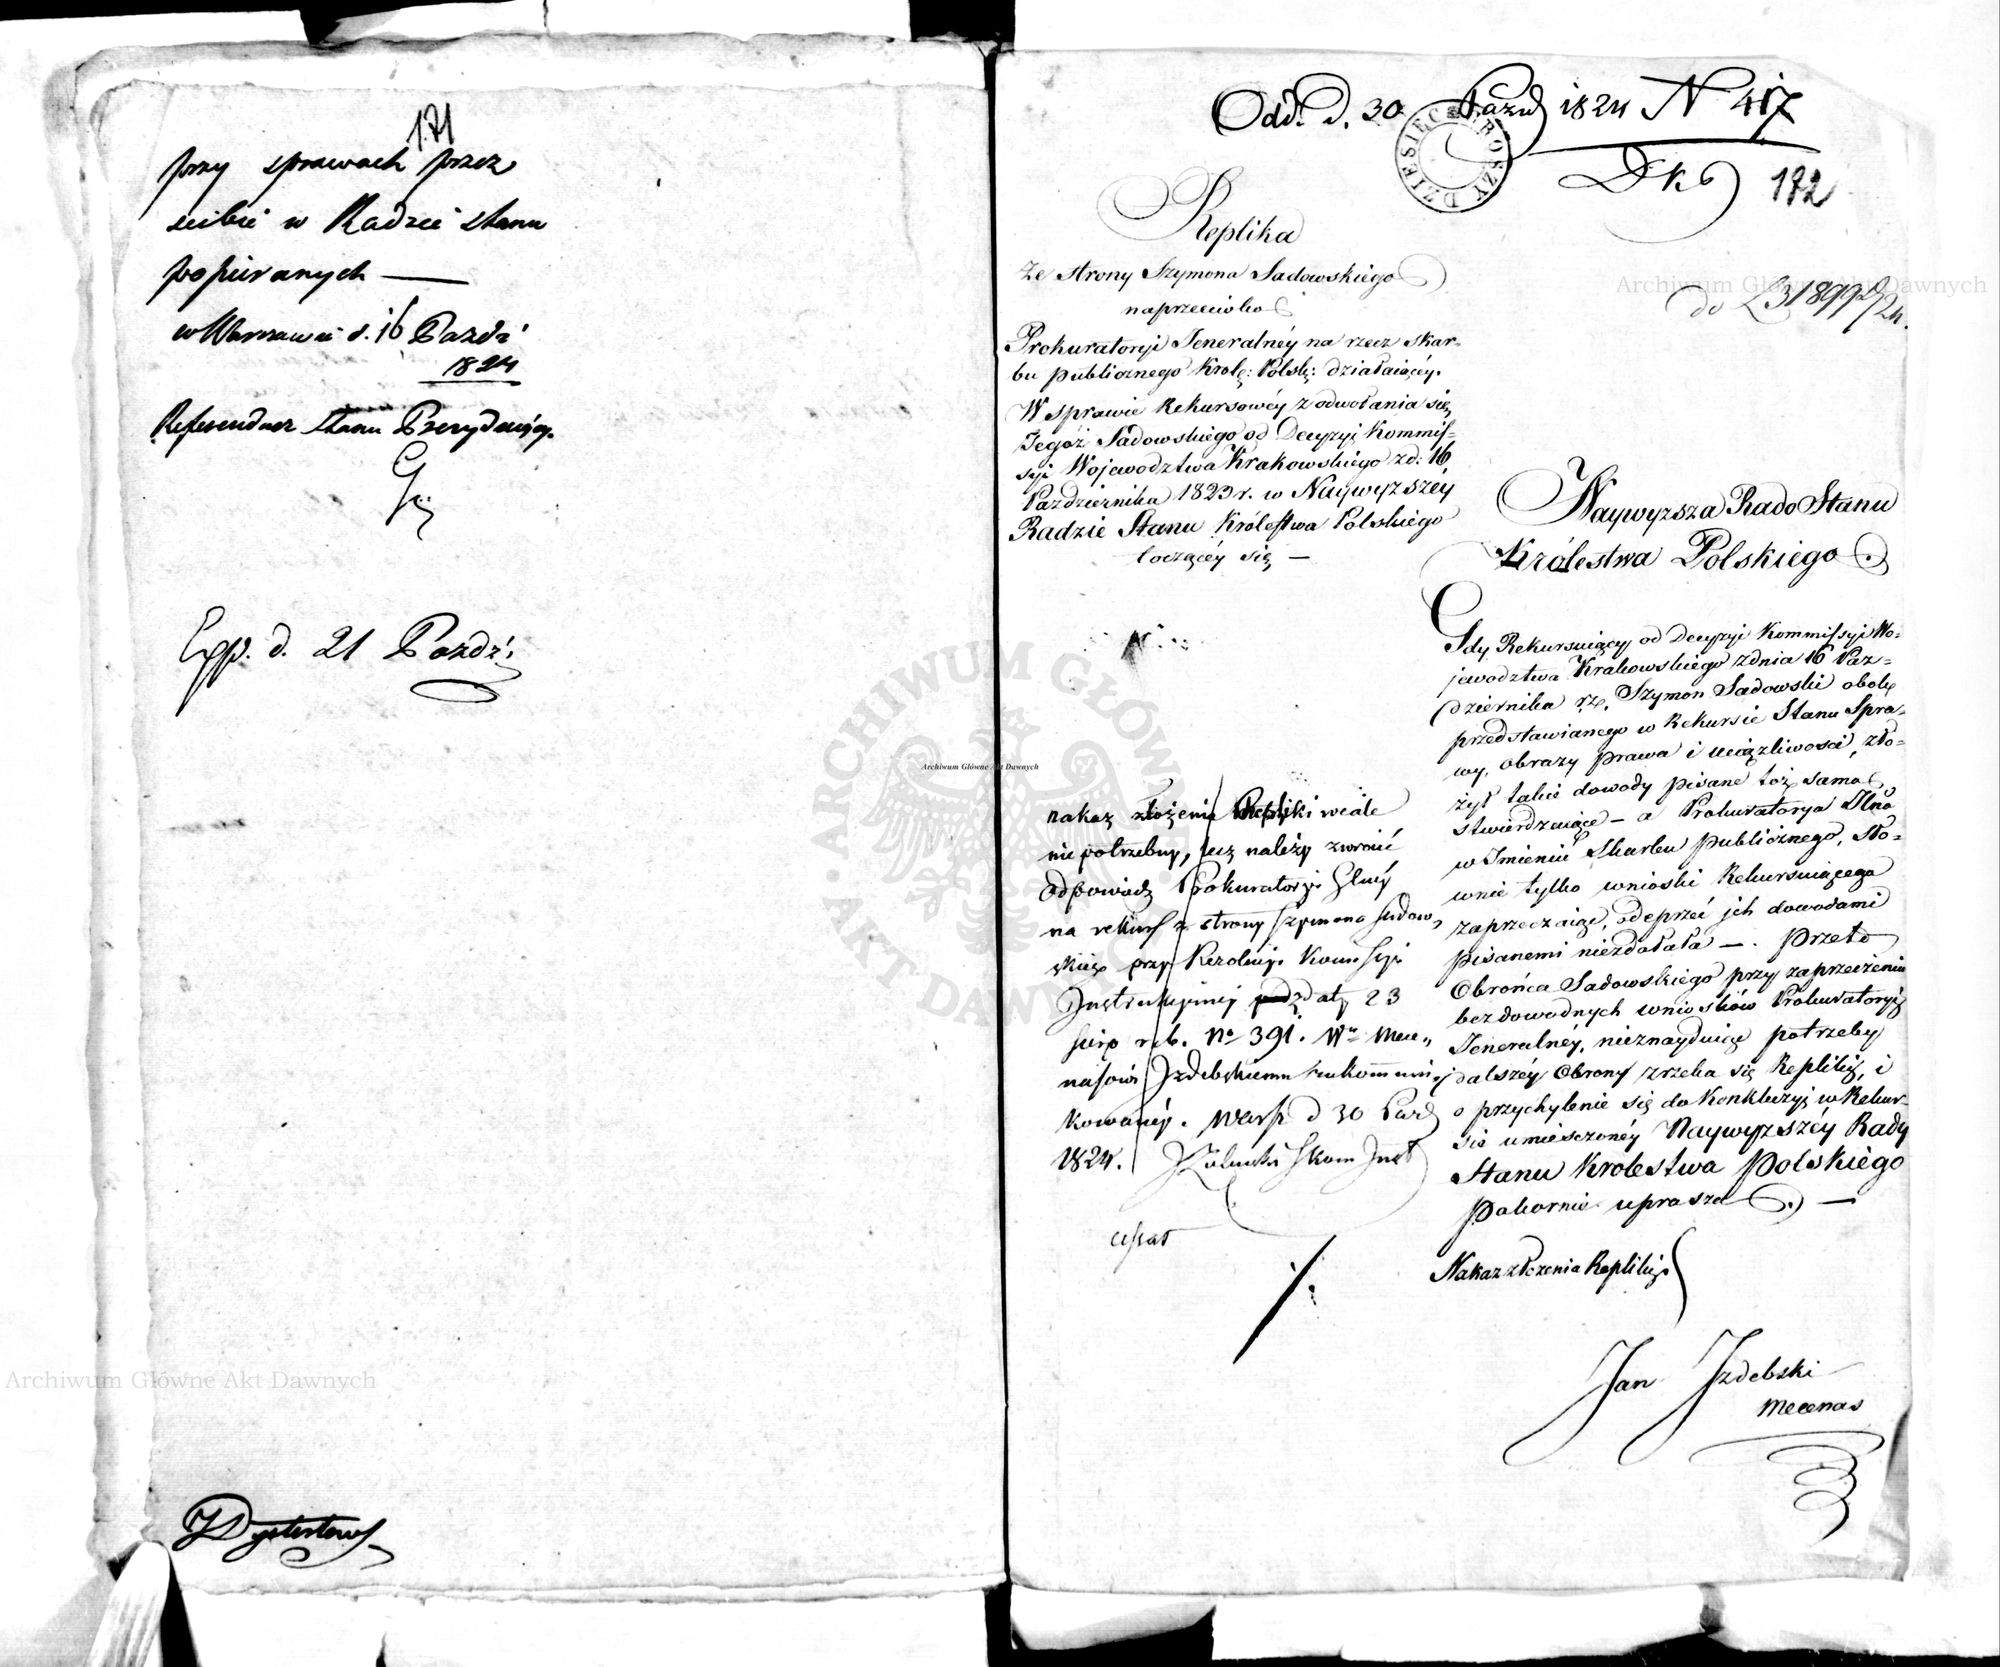 171
przy sprawach przez
siebie w Radzie Stanu
popieranych —
w Warszawie d. 16 Pazdź
1824
Referendarz Stanu Prezyduiący.
Exp. d. 21 Pazdź:
Odd. d. 30 Pazd 1824 N 417
172
DZIESIĘĆ GROSZY
Replika
Ze strony Szymona Sadowskiego
naprzeciwko
Prokuratoryi Jeneralnéy na rzecz Skar-
bu publicznego Króle: Polsk: działaiącéy.
W sprawie Rekursowéy z odwołania się
Tegóż Sadowskiego od Decyzyi Kommis-
syi Województwa Krakowskiego z d: 16
Pazdziernika 1823 r. w Naywyższéy
Radzie Stanu Królestwa Polskiego
toczącéy się —
Naywyzsza Rado Stanu
Królestwa Polskiego
Gdy Rekursuiący od Decyzyi Kommissyi Wo-
jewodztwa Krakowskiego z dnia 16 Paz-
dziernika Szymon Sadowski obok
przedstawianego w Rekursie Stanu Spra-
wy, obrazy prawa i uciązliwości, zło-
żył takie dowody pisane toż samo
stwierdzaiące — a Prokuratorya Jlna
w Imieniu Skarbu publicznego, sło-
wnie tylko wnioski Rekursuiącego
zaprzeczaiąc, odeprzéć jch dowodami
pisanemi niezdołała —. Przeto
Obrońca Sadowskiego przy zaprzeczeniu
bezdowodnych wniosków Prokuratoryi
Jeneralnéy, nieznayduiąc potrzeby
dalszéy Obrony zrzeka się Repliki, i
o przychylenie się do Konkluzyi w Rekur-
sie umiesczonéy Naywyzszéy Rady
Stanu Krolestwa Polskiego
pokornie uprasza. —
Nakaz złozenia Repliki
Jan Jzdebski
Mecenas
nakaz złożenia Repliki wcale
nie potrzebny, lecz należy zwrócić
odpowiedz Prokuratoryi Glnéy
na rekurs z strony Szymona Sadow,
skiego przy Rezolucyi Kommissyi
Jnstrukcyinéy z daty 23
Sierp r. b. No 391. Wu Mece,,
nasowi Jzdebskiemu zakommuni,
kowanéy. Warsz d 30 Paz
1824.
Archiwum Główne Akt Dawnych
Archiwum Główne Akt Dawnych
Archiwum Główne Akt Dawnych
ARCHIWUM GŁÓWNE AKT DAWNYCH